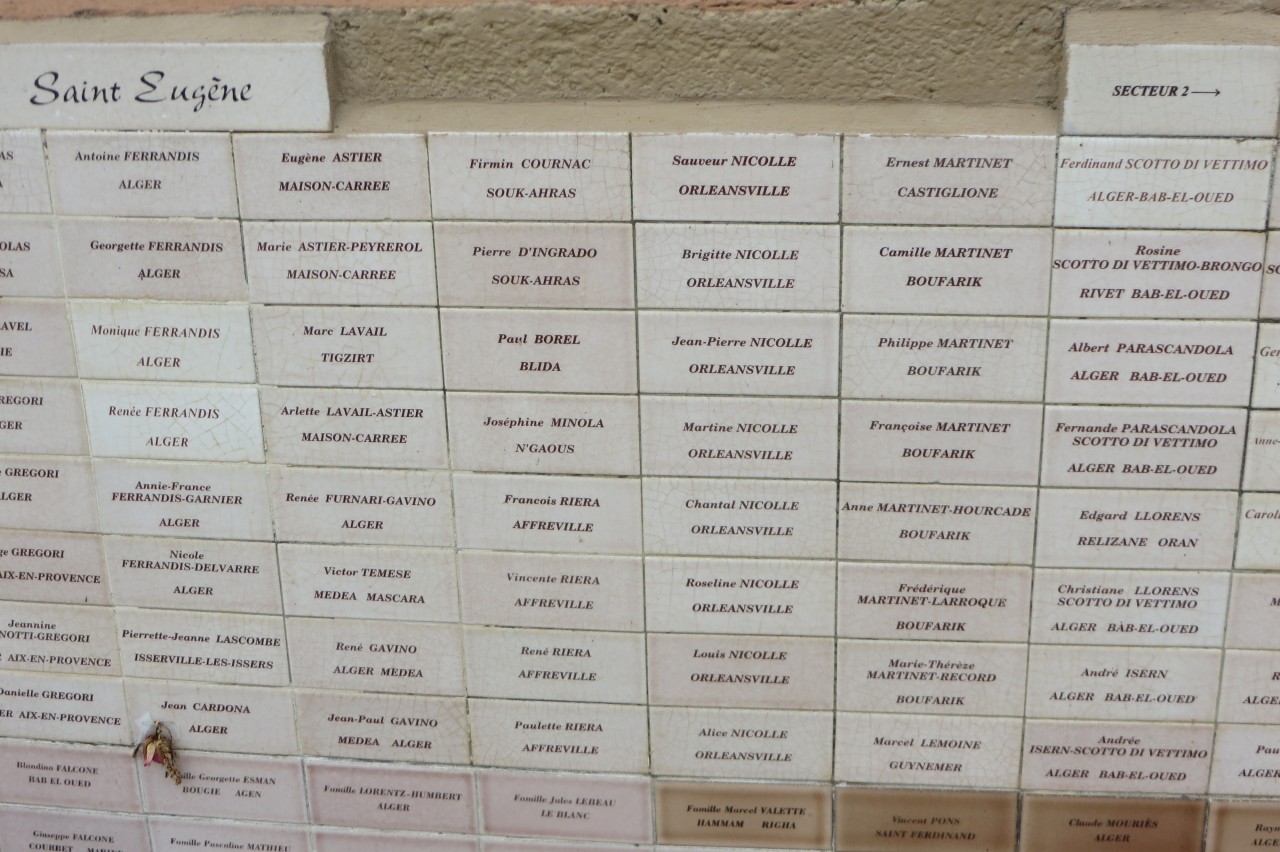 Saint Eugène
SECTEUR 2→
Antoine FERRANDIS
ALGER
Eugène ASTIER
MAISON-CARREE
Firmin COURNAC
SOUK-AHRAS
Sauveur NICOLLE
ORLEANSVILLE
Ernest MARTINET
CASTIGLIONE
Ferdinand SCOTTO DI VETTIMO
ALGER-BAB-EL-OUED
Georgette FERRANDIS
ALGER
Marie ASTIER-PEYREROL
MAISON-CARREE
Pierre D'INGRADO
SOUK-AHRAS
Brigitte NICOLLE
ORLEANSVILLE
Camille MARTINET
BOUFARIK
Rosine
SCOTTO DI VETTIMO-BRONGO
RIVET BAB-EL-OUED
Monique FERRANDIS
ALGER
Marc LAVAIL
TIGZIRT
Paul BOREL
BLIDA
Jean-Pierre NICOLLE
ORLEANSVILLE
Philippe MARTINET
BOUFARIK
Albert PARASCANDOLA
ALGER BAB-EL-OUED
Renée FERRANDIS
ALGER
Arlette LAVAIL-ASTIER
MAISON-CARREE
Joséphine MINOLA
N'GAOUS
Martine NICOLLE
ORLEANSVILLE
Françoise MARTINET
BOUFARIK
Fernande PARASCANDOLA
SCOTTO DI VETTIMO
ALGER BAB-EL-OUED
GREGORI
Annie-France
FERRANDIS-GARNIER
ALGER
Renée FURNARI-GAVINO
ALGER
Francois RIERA
AFFREVILLE
Chantal NICOLLE
ORLEANSVILLE
Anne MARTINET-HOURCADE
BOUFARIK
Edgard LLORENS
RELIZANE ORAN
GREGORI
AIX-EN-PROVENCE
Nicole
FERRANDIS-DELVARRE
ALGER
Victor TEMESE
MEDEA MASCARA
Vincente RIERA
AFFREVILLE
Roseline NICOLLE
ORLEANSVILLE
Frédérique
MARTINET-LARROQUE
BOUFARIK
Christiane LLORENS
SCOTTO DI VETTIMO
ALGER BAB-EL-OUED
Jeannine
NOTTI-GREGORI
AIX-EN-PROVENCE
Pierrette-Jeanne LASCOMBE
ISSERVILLE-LES-ISSERS
René GAVINO
ALGER MEDEA
René RIERA
AFFREVILLE
Louis NICOLLE
ORLEANSVILLE
Marie-Thérèze
MARTINET-RECORD
BOUFARIK
André ISERN
ALGER BAB-EL-OUED
Danielle GREGORI
AIX-EN-PROVENCE
Jean CARDONA
ALGER
Jean-Paul GAVINO
MEDEA ALGER
Paulette RIERA
AFFREVILLE
Alice NICOLLE
ORLEANSVILLE
Marcel LEMOINE
GUYNEMER
Andrée
ISERN-SCOTTO DI VETTIMO
ALGER BAB-EL-OUED
Blandine FALCONE
BAB EL OUED
Georgette ESMAN
BOUGIE AGEN
Famille LORENTZ-HUMBERT
ALGER
Famille Jules LEBEAU
LE BLANC
Famille Marcel VALETTE
HAMMAM RIGHA
Vincent PONS
SAINT FERDINAND
Claude MOURIÈS
ALGER
Giuseppe FALCONE
COURBET
Famille Pascaline MATHIEU